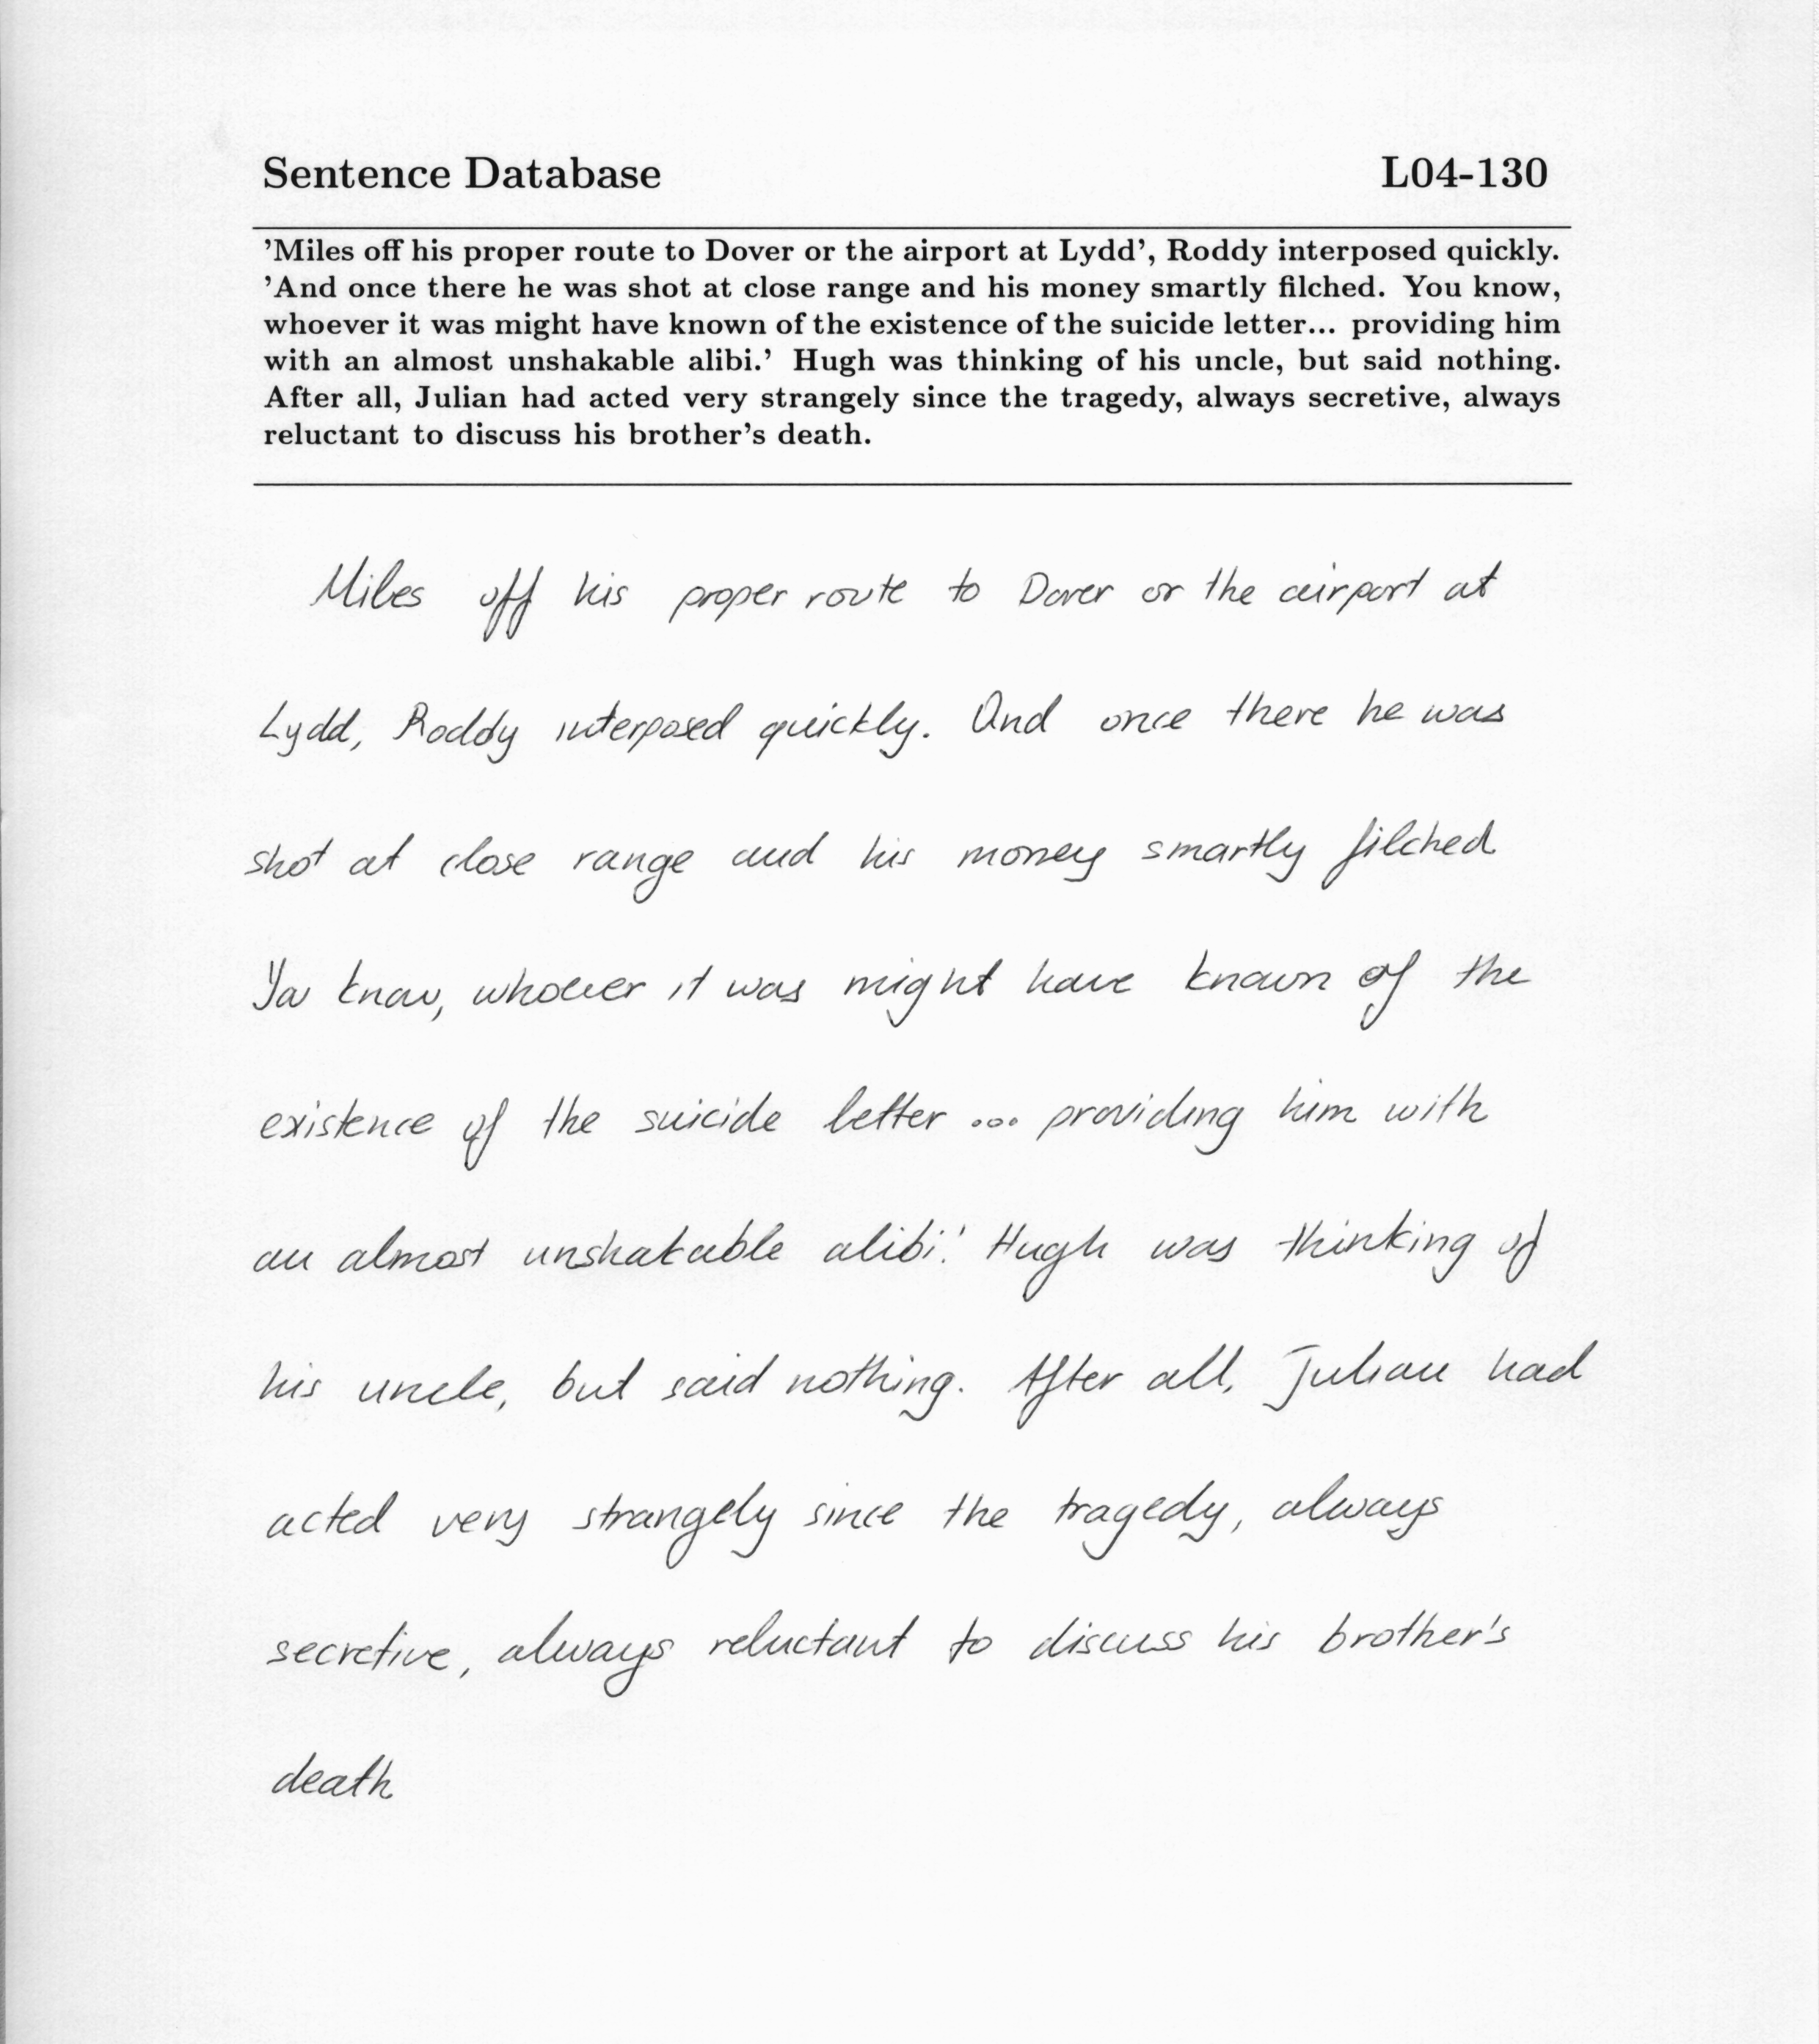 Sentence Database L04-130
’Miles off his proper route to Dover or the airport at Lydd’, Roddy interposed quickly.
’And once there he was shot at close range and his money smartly filched. You know,
whoever it was might have known of the existence of the suicide letter... providing him
with an almost unshakable alibi.’ Hugh was thinking of his uncle, but said nothing.
After all, Julian had acted very strangely since the tragedy, always secretive, always
reluctant to discuss his brother’s death.
Miles off his proper route to Dover or the airport at
Lydd, Roddy interposed quickly. And once there he was
shot at close range and his money smartly filched
You know, whoever it was might have known of the
existence of the suicide letter ... providing him with
an almost unshakable alibi.' Hugh was thinking of
his uncle, but said nothing. After all, Julian had
acted very strangely since the tragedy, always
secretive, always reluctant to discuss his brother's
death